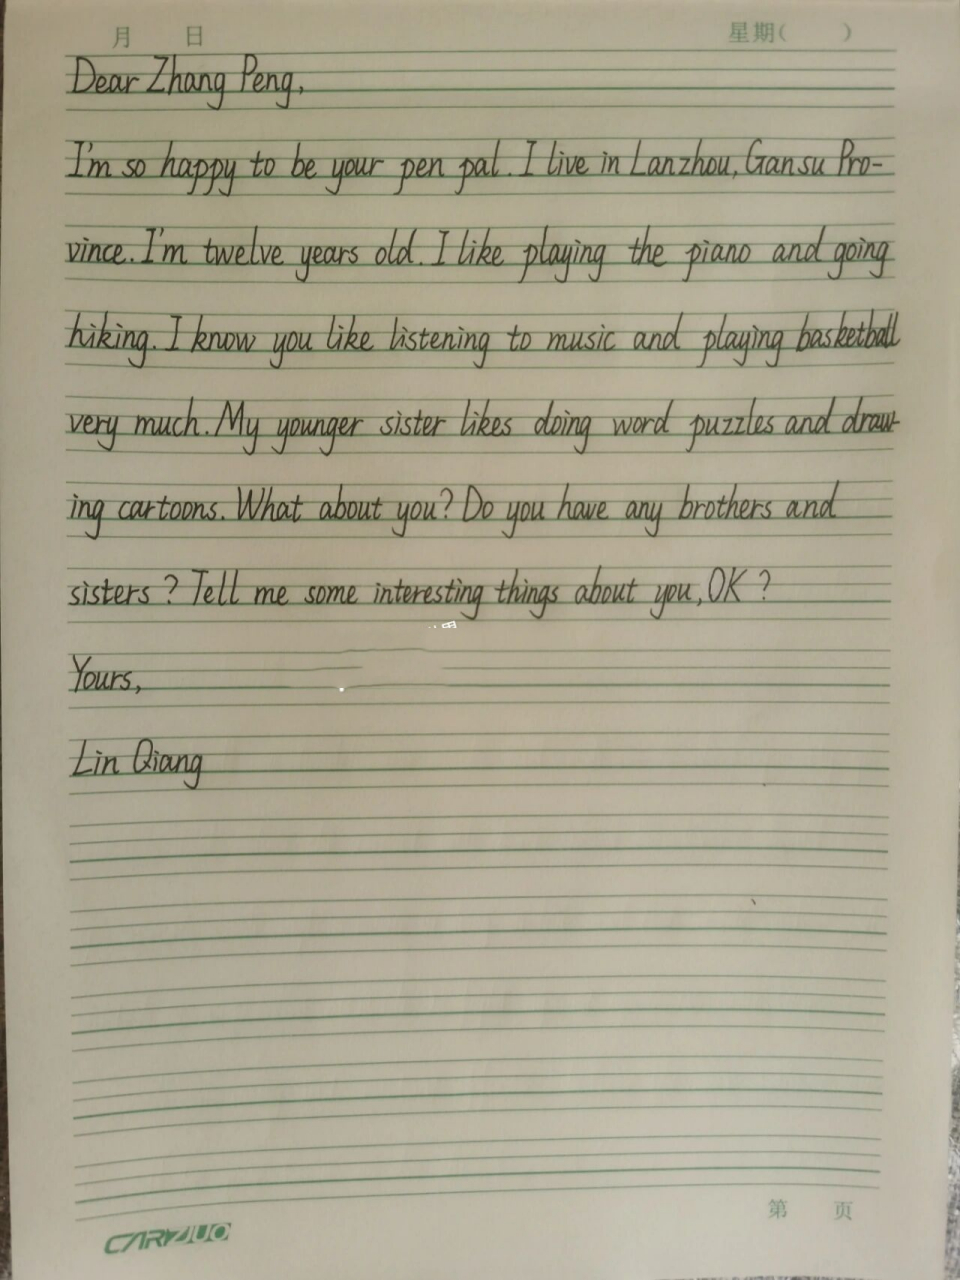 月 日 星期( )
Dear Zhang Peng,
I'm so happy to be your pen pal. I live in Lanzhou, Gansu Pro-
vince. I'm twelve years old. I like playing the piano and going
hiking. I know you like listening to music and playing basketball
very much. My younger sister likes doing word puzzles and draw-
ing cartoons. What about you? Do you have any brothers and
sisters? Tell me some interesting things about you, OK?
Yours,
Lin Qiang
第 页